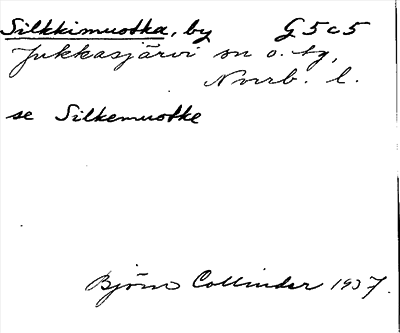 Silkkimuotka, by G5c5
Jukkasjärvi sn o. tg,
Norrb. l.
se Silkemuotke
Björn Collinder 1937.